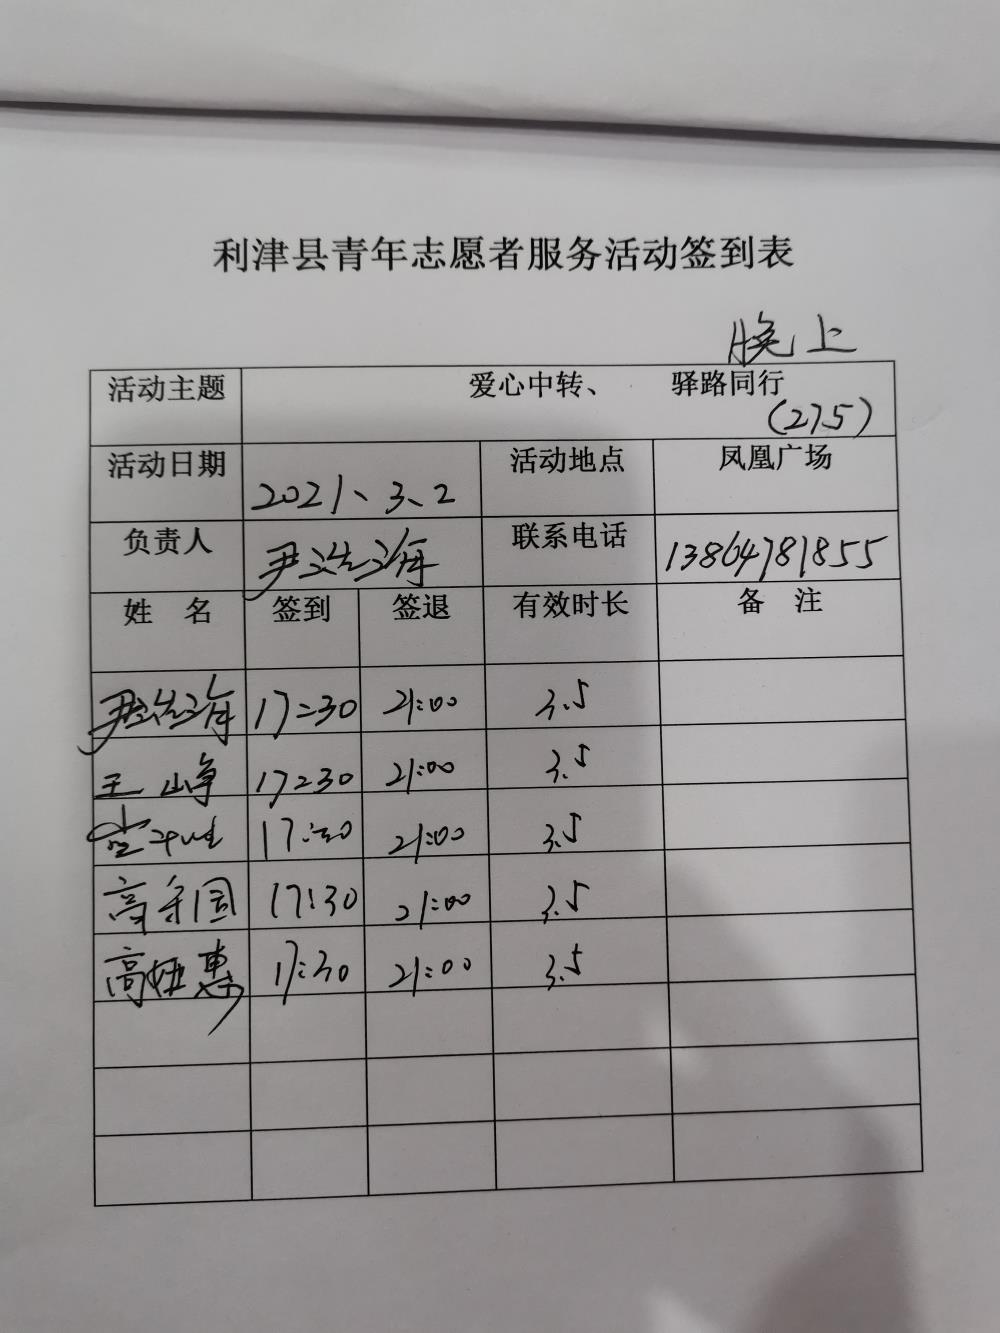 利津县青年志愿者服务活动签到表
晚上
活动主题 爱心中转、 驿路同行
(275)
活动日期 2021、3、2 活动地点 凤凰广场
负责人 尹浩海 联系电话 13864781855
姓 名 签到 签退 有效时长 备 注
尹浩海 17:30 21:00 3.5
王峥 17:30 21:00 3.5
17:30 21:00 3.5
高守国 17:30 21:00 3.5
高娅惠 17:30 21:00 3.5